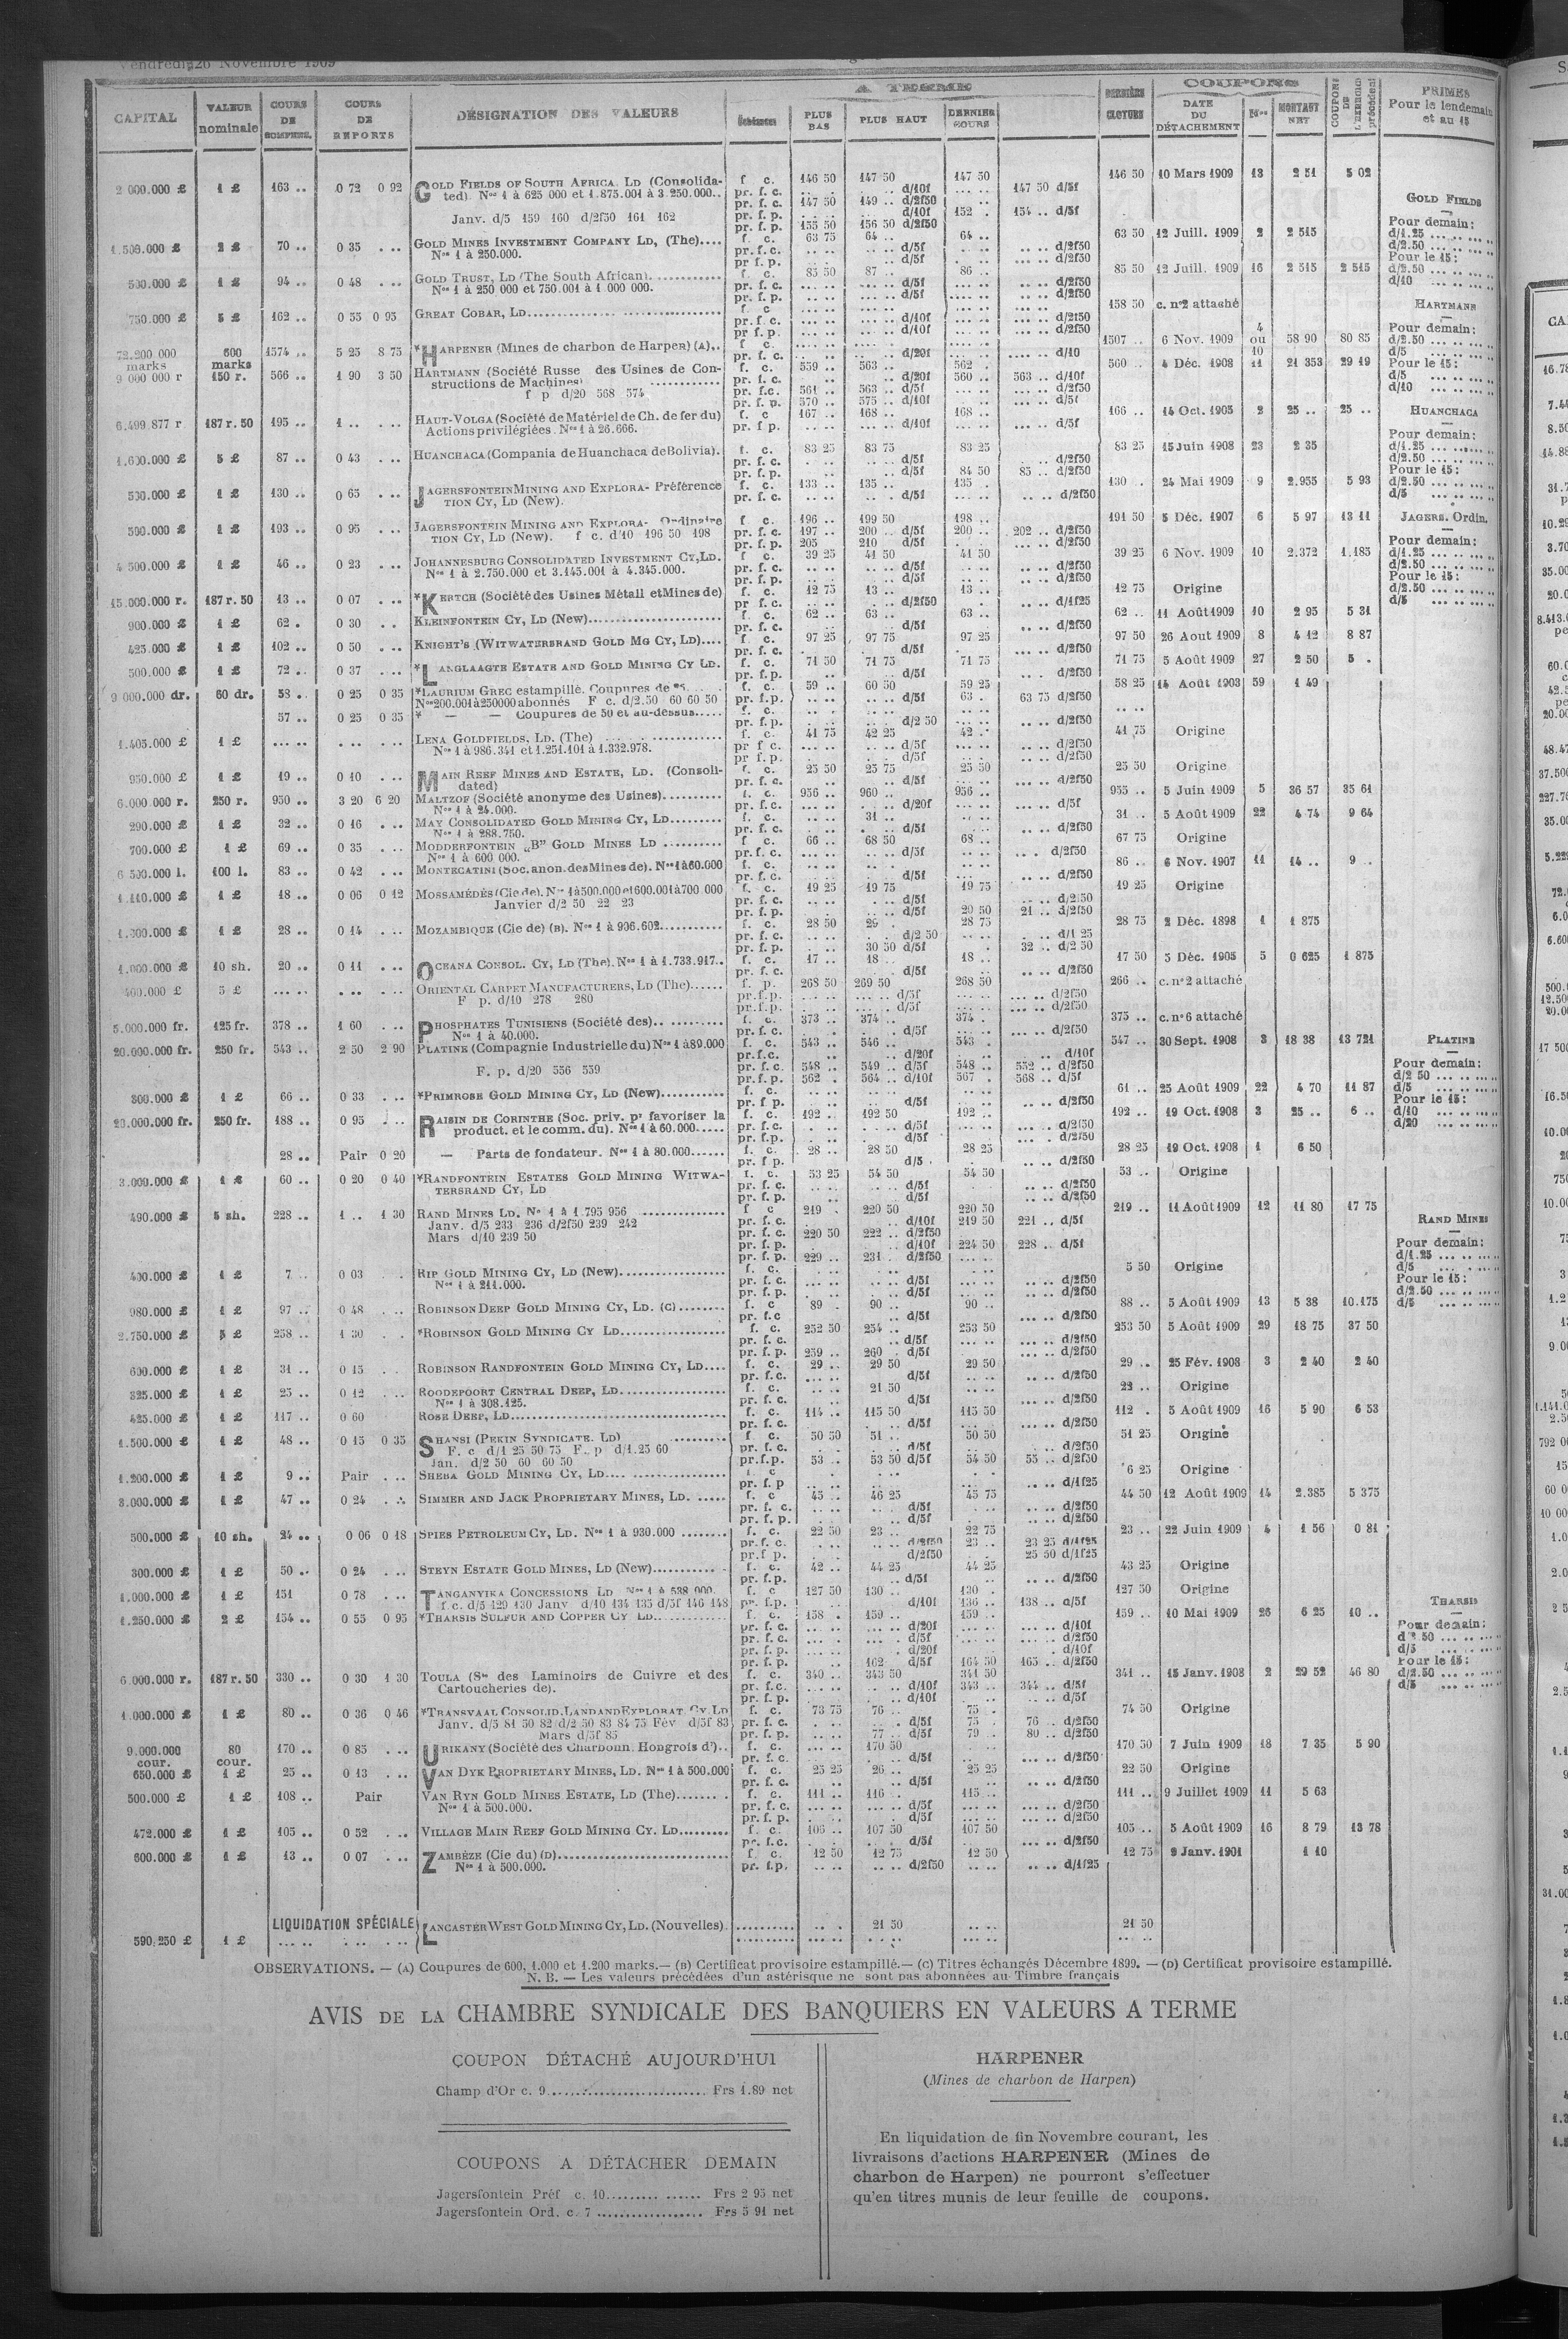 Vendredi 26 Novembre 1909
A TERME
COUPONS
CAPITAL
VALEUR nominale
COURS DE COMPENS.
COURS DE REPORTS
DÉSIGNATION DES VALEURS
Échéances
PLUS BAS
PLUS HAUT
DERNIER COURS
DERNIÈRE CLOTURE
DATE DU DÉTACHEMENT
Nos
MONTANT NET
COUPONS DE L'EXERCICE précédent
PRIMES Pour le lendemain et au 15
2 000.000 £ 1 £ 163 .. 0 72 0 92 GOLD FIELDS OF SOUTH AFRICA. LD (Consolida- f. c. 146 50 147 50 147 50 146 50 10 Mars 1909 13 2 51 5 02
ted) Nos 1 à 625 000 et 1.875.001 à 3.250.000.. pr. f. c. d/10f 147 50 d/5f
pr. f. c. 147 50 149 .. d/2f50
Janv. d/5 159 160 d/2f50 161 162 pr. f. p. d/10f 152 . 154 .. d/5f
pr. f. p. 155 50 156 50 d/2f50
1.500.000 £ 2 £ 70 .. 0 35 GOLD MINES INVESTMENT COMPANY LD, (The).... f. c. 63 75 64 .. 64 .. 63 50 12 Juill. 1909 2 2 515
Nos 1 à 250.000. pr. f. c. d/5f d/2f50
pr f. p. d/5f d/2f50
500.000 £ 1 £ 94 .. 0 48 GOLD TRUST, LD (The South African). f. c. 85 50 87 .. 86 .. 85 50 12 Juill. 1909 16 2 515 2 515
Nos 1 à 250 000 et 750.001 à 1 000 000. pr. f. c. d/5f d/2f50
pr. f. p. d/5f d/2f50
750.000 £ 5 £ 162 .. 0 55 0 95 GREAT COBAR, LD f. c 158 50 c. n°2 attaché
pr. f. c. d/10f d/2f50
pr f p. d/10f d/2f50
72.200 000 marks 600 marks 1574 .. 5 25 8 75 *HARPENER (Mines de charbon de Harpen) (A).. f c. 1507 .. 6 Nov. 1909 4 ou 10 58 90 80 85
pr. f. c. d/20f d/10
9 000 000 r 150 r. 566 .. 1 90 3 50 HARTMANN (Société Russe des Usines de Con- f. c. 559 .. 563 .. 562 . 560 .. 4 Déc. 1908 11 21 353 29 19
structions de Machines) pr. f. c. d/20f 560 .. 563 .. d/10f
pr. f.c. 561 .. 563 .. d/5f d/2f50
f p d/20 568 574 pr. f. p. 570 .. 575 .. d/10f d/5f
6.499 877 r 187 r. 50 195 .. 1 .. HAUT-VOLGA (Société de Matériel de Ch. de fer du) f. c 167 .. 168 .. 168 .. 166 .. 14 Oct. 1905 2 25 .. 25 ..
Actions privilégiées. Nos 1 à 26.666. pr. f p. d/10f d/5f
1.600.000 £ 5 £ 87 .. 0 43 HUANCHACA (Compania de Huanchaca de Bolivia). f. c. 83 25 83 75 83 25 83 25 15 Juin 1908 23 2 35
pr. f. c. d/5f d/2f50
pr. f. p. d/5f 84 50 85 .. d/2f50
500.000 £ 1 £ 130 .. 0 65 JAGERSFONTEIN MINING AND EXPLORA- Préférence f. c. 133 .. 135 .. 135 . 130 .. 24 Mai 1909 9 2.955 5 93
TION CY, LD (New). pr. f. c. d/5f d/2f50
500.000 £ 1 £ 193 .. 0 95 JAGERSFONTEIN MINING AND EXPLORA- Ordinaire f c. 196 .. 199 50 198 .. 191 50 5 Déc. 1907 6 5 97 13 11
TION CY, LD (New). f c. d/10 196 50 198 pr. f. c. 197 .. 200 .. d/5f 200 .. 202 .. d/2f50
pr. f. p. 205 210 d/5f d/2f50
4 500.000 £ 1 £ 46 .. 0 23 JOHANNESBURG CONSOLIDATED INVESTMENT CY, LD. f c. 39 25 41 50 41 50 39 25 6 Nov. 1909 10 2.372 1.185
Nos 1 à 2.750.000 et 3.145.001 à 4.345.000. pr. f. c. d/5f d/2f50
pr. f. p. d/5f d/2f50
15.000.000 r. 187 r. 50 13 .. 0 07 *KERTCH (Société des Usines Métall et Mines de) f. c. 12 75 13 .. 13 .. 12 75 Origine
pr f. c. d/2f50 d/1f25
900.000 £ 1 £ 62 . 0 30 KLEINFONTEIN CY, LD (New) f. c. 62 .. 63 .. 63 .. 62 .. 11 Août 1909 10 2 95 5 31
pr. f. c. d/5f d/2f50
425.000 £ 1 £ 102 .. 0 50 KNIGHT'S (WITWATERSRAND GOLD MG CY, LD).... f. c. 97 25 97 75 97 25 97 50 26 Aout 1909 8 4 12 8 87
pr. f. c. d/5f d/2f50
500.000 £ 1 £ 72 .. 0 37 *LANGLAAGTE ESTATE AND GOLD MINING CY LD. f. c. 71 50 71 75 71 75 71 75 5 Août 1909 27 2 50 5 .
pr. f. p. d/5f d/2f50
9 000.000 dr. 60 dr. 58 .. 0 25 0 35 *LAURIUM GREC estampillé. Coupures de f. c. 59 .. 60 50 59 25 58 25 14 Août 1903 59 1 49
Nos 200.001 à 250000 abonnés F c. d/2.50 60 60 50 pr. f.p. d/5f 63 . 63 75 d/2f50
57 .. 0 25 0 35 * — — Coupures de 50 et au-dessus..... f. c.
pr. f. p. d/2 50 d/2f50
1.405.000 £ 1 £ LENA GOLDFIELDS, LD. (The) f. c. 41 75 42 25 42 .. 41 75 Origine
Nos 1 à 986.341 et 1.251.101 à 1.332.978. pr f c. d/5f d/2f50
pr f.p. d/5f d/2f50
950.000 £ 1 £ 19 .. 0 10 MAIN REEF MINES AND ESTATE, LD. (Consoli- f. c. 25 50 25 75 25 50 25 50 Origine
dated) pr. f. c. d/5f d/2f50
6.000.000 r. 250 r. 950 .. 3 20 6 20 MALTZOF (Société anonyme des Usines) f. c. 956 .. 960 .. 956 .. 955 .. 5 Juin 1909 5 36 57 35 61
Nos 1 à 24.000. pr. f.c. d/20f d/5f
290.000 £ 1 £ 32 .. 0 16 MAY CONSOLIDATED GOLD MINING CY, LD f. c. 31 .. 31 .. 5 Août 1909 22 4 74 9 64
Nos 1 à 288.750. pr. f. c. d/5f d/2f50
700.000 £ 1 £ 69 .. 0 35 MODDERFONTEIN „B” GOLD MINES LD f c. 66 .. 68 50 68 .. 67 75 Origine
Nos 1 à 600 000. pr. f. c. d/5f d/2f50
6 500.000 l. 100 l. 83 .. 0 42 MONTECATINI (Soc. anon. des Mines de). Nos 1 à 60.000 f. c. 86 .. 6 Nov. 1907 11 14 .. 9 .
pr. f. c. d/5f d/2f50
1.110.000 £ 1 £ 18 .. 0 06 0 12 MOSSAMÉDÈS (Cie de). Nos 1 à 500.000 et 600.001 à 700 000 f. c. 19 25 19 75 19 75 19 25 Origine
Janvier d/2 50 22 23 pr. f. c. d/5f d/2f50
pr. f. p. d/5f 20 50 21 .. d/2f50
1.300.000 £ 1 £ 28 .. 0 14 MOZAMBIQUE (Cie de) (B). Nos 1 à 936.602 f. c. 28 50 29 . 28 75 28 75 2 Déc. 1898 1 1 875
pr. f. c. d/2 50 d/1 25
pr. f. p. 30 50 d/5f 32 .. d/2 50
1.000.000 £ 10 sh. 20 .. 0 11 OCEANA CONSOL. CY, LD (The). Nos 1 à 1.733.917.. f. c. 17 .. 18 .. 18 .. 17 50 5 Déc. 1905 5 0 625 1 875
pr. f. c. d/5f d/2f50
400.000 £ 5 £ ORIENTAL CARPET MANUFACTURERS, LD (The) f. p. 268 50 269 50 268 50 266 .. c. n°2 attaché
F p. d/10 278 280 pr.f.p. d/5f d/2f50
pr.f.p. d/5f d/2f50
5.000.000 fr. 125 fr. 378 .. 1 60 PHOSPHATES TUNISIENS (Société des) f. c. 373 .. 374 .. 374 . 375 .. c. n°6 attaché
Nos 1 à 40.000. pr. f. c. d/5f d/2f50
20.000.000 fr. 250 fr. 543 .. 2 50 2 90 PLATINE (Compagnie Industrielle du) Nos 1 à 89.000 f. c. 543 .. 546 .. 543 . 547 .. 30 Sept. 1908 3 18 38 13 721
pr.f.c. d/20f d/10f
F. p. d/20 556 559 pr. f. c. 548 .. 549 .. d/5f 548 .. 552 .. d/2f50
pr. f. p. 562 . 564 .. d/10f 567 . 568 .. d/5f
300.000 £ 1 £ 66 .. 0 33 *PRIMROSE GOLD MINING CY, LD (New) f. c. 61 .. 25 Août 1909 22 4 70 11 87
pr. f p. d/5f d/2f50
20.000.000 fr. 250 fr. 188 .. 0 95 RAISIN DE CORINTHE (Soc. priv. pr favoriser la f. c. 192 .. 192 50 192 .. 192 .. 19 Oct. 1908 3 25 .. 6 ..
product. et le comm. du). Nos 1 à 60.000 pr. f.c. d/5f d/2f50
pr. f.p. d/5f d/2f50
28 .. Pair 0 20 — Parts de fondateur. Nos 1 à 80.000 f. c. 28 .. 28 50 28 25 28 25 19 Oct. 1908 1 6 50
pr. f p. d/5 d/2f50
3.000.000 £ 1 £ 60 .. 0 20 0 40 *RANDFONTEIN ESTATES GOLD MINING WITWA- f. c. 53 25 54 50 54 50 53 .. Origine
TERSRAND CY, LD pr. f. c. d/5f d/2f50
pr. f. p. d/5f d/2f50
490.000 £ 5 sh. 228 .. 1 .. 1 30 RAND MINES LD. Nos 1 à 1.795 956 f c 219 . 220 50 220 50 219 .. 11 Août 1909 12 11 80 17 75
Janv. d/5 233 236 d/2f50 239 242 pr. f. c. d/10f 219 50 221 .. d/5f
Mars d/10 239 50 pr. f. c. 220 50 222 .. d/2f50
pr. f. p. d/10f 224 50 228 .. d/5f
pr. f. p. 229 .. 231 . d/2f50
400.000 £ 1 £ 7 .. 0 03 RIP GOLD MINING CY, LD (New) f. c. 5 50 Origine
Nos 1 à 211.000. pr. f. c. d/5f d/2f50
pr. f. p. d/5f d/2f50
980.000 £ 1 £ 97 .. 0 48 ROBINSON DEEP GOLD MINING CY, LD. (C) f. c 89 . 90 .. 90 .. 88 .. 5 Août 1909 13 5 38 10.175
pr. f.c d/5f d/2f50
2.750.000 £ 5 £ 258 .. 1 30 *ROBINSON GOLD MINING CY LD f. c. 252 50 254 .. 253 50 253 50 5 Août 1909 29 18 75 37 50
pr. f. c. d/5f d/2f50
pr. f. p. 259 .. 260 . d/5f d/2f50
600.000 £ 1 £ 31 .. 0 15 ROBINSON RANDFONTEIN GOLD MINING CY, LD.... f. c. 29 .. 29 50 29 50 29 .. 25 Fév. 1908 3 2 40 2 40
pr. f.c. d/5f d/2f50
325.000 £ 1 £ 25 .. 0 12 ROODEPOORT CENTRAL DEEP, LD f. c. 21 50 22 .. Origine
Nos 1 à 308.125. pr. f. c. d/5f d/2f50
425.000 £ 1 £ 117 .. 0 60 ROSE DEEP, LD f. c. 114 .. 115 50 115 50 112 . 5 Août 1909 16 5 90 6 53
pr. f. c. d/5f d/2f50
1.500.000 £ 1 £ 48 .. 0 15 0 35 SHANSI (PEKIN SYNDICATE. LD) f c. 50 50 51 .. 50 50 51 25 Origine
F. c. d/1 25 50 75 F. p d/1.25 60 pr. f. c. d/5f d/2f50
Jan. d/2 50 60 60 50 pr.f.p. 53 .. 53 50 d/5f 54 50 55 .. d/2f50
1.200.000 £ 1 £ 9 .. Pair SHEBA GOLD MINING CY, LD f. c 6 25 Origine
pr. f. p d/1f25
3.000.000 £ 1 £ 47 .. 0 24 SIMMER AND JACK PROPRIETARY MINES, LD. f. c 45 .. 46 25 45 75 44 50 12 Août 1909 14 2.385 5 375
pr. f. c. d/5f d/2f50
pr. f. p. d/5f d/2f50
500.000 £ 10 sh. 24 .. 0 06 0 18 SPIES PETROLEUM CY, LD. Nos 1 à 930.000 f. c. 22 50 23 .. 22 75 23 .. 22 Juin 1909 4 1 56 0 81
pr.f. c. d/2f50 23 .. 23 25 d/1f25
pr.f p. d/2f50 25 50 d/1f25
300.000 £ 1 £ 50 .. 0 24 STEYN ESTATE GOLD MINES, LD (New) f. c. 42 .. 44 25 44 25 43 25 Origine
pr. f.p. d/5f d/2f50
1.000.000 £ 1 £ 151 0 78 TANGANYIKA CONCESSIONS LD Nos 1 à 538 000. f. c 127 50 130 .. 130 . 127 50 Origine
f c. d/5 129 130 Janv d/10 134 135 d/5f 146 148 pr. f.p. d/10f 136 .. 138 .. d/5f
1.250.000 £ 2 £ 154 .. 0 55 0 95 *THARSIS SULFUR AND COPPER CY LD f. c. 158 . 159 .. 159 .. 159 .. 10 Mai 1909 26 6 25 10 ..
pr. f. c. d/20f d/10f
pr. f. c. d/5f d/2f50
pr. f. p. d/20f d/10f
pr. f. p. 162 d/5f 164 50 165 .. d/2f50
6.000.000 r. 187 r. 50 330 .. 0 30 1 30 TOULA (Sté des Laminoirs de Cuivre et des f. c. 340 .. 343 50 341 50 341 .. 15 Janv. 1908 2 29 52 46 80
Cartoucheries de). pr. f.c. d/10f 343 .. 344 .. d/5f
pr. f. p. d/10f d/5f
1.000.000 £ 1 £ 80 .. 0 36 0 46 *TRANSVAAL CONSOLID. LAND AND EXPLORAT. CY LD f. c. 73 75 76 .. 75 . 74 50 Origine
Janv. d/5 81 50 82 d/2 50 83 84 75 Fév d/5f 83 pr. f. c. d/5f 75 . 76 .. d/2f50
Mars d/5f 85 pr. f. p. 77 .. d/5f 79 . 80 .. d/2f50
9.000.000 cour. 80 cour. 170 .. 0 85 URIKANY (Société des Charbonn. Hongrois d').. f. c. 170 50 170 50 7 Juin 1909 18 7 35 5 90
pr. f. c. d/5f d/2f50
650.000 £ 1 £ 25 .. 0 13 VAN DYK PROPRIETARY MINES, LD. Nos 1 à 500.000 f. c. 25 25 26 .. 25 25 22 50 Origine
pr. f. c. d/5f d/2f50
500.000 £ 1 £ 108 .. Pair VAN RYN GOLD MINES ESTATE, LD (The) f. c. 111 .. 116 .. 115 .. 111 .. 9 Juillet 1909 11 5 63
Nos 1 à 500.000. pr. f. c. d/5f d/2f50
pr. f. p. d/5f d/2f50
472.000 £ 1 £ 105 .. 0 52 VILLAGE MAIN REEF GOLD MINING CY. LD f. c. 106 .. 107 50 107 50 105 .. 5 Août 1909 16 8 79 13 78
pr. f.c. d/5f d/2f50
600.000 £ 1 £ 13 .. 0 07 ZAMBÈZE (Cie du) (D) f. c. 12 50 12 75 12 50 12 75 9 Janv. 1901 1 10
Nos 1 à 500.000. pr. f.p. d/2f50 d/1f25
LIQUIDATION SPÉCIALE
590,250 £ 1 £ LANCASTER WEST GOLD MINING CY, LD. (Nouvelles). 21 50 21 50
GOLD FIELDS
Pour demain:
d/1.25
d/2.50
Pour le 15:
d/2.50
d/10
HARTMANN
Pour demain:
d/2.50
d/5
Pour le 15:
d/5
d/10
HUANCHACA
Pour demain:
d/1.25
d/2.50
Pour le 15:
d/2.50
d/5
JAGERS. Ordin.
Pour demain:
d/1.25
d/2.50
Pour le 15:
d/2.50
d/5
PLATINE
Pour demain:
d/2 50
d/5
Pour le 15:
d/10
d/20
RAND MINES
Pour demain:
d/1.25
d/5
Pour le 15:
d/2.50
d/5
THARSIS
Pour demain:
d/2 50
d/5
Pour le 15:
d/2.50
d/5
OBSERVATIONS. — (A) Coupures de 600, 1.000 et 1.200 marks.— (B) Certificat provisoire estampillé.— (C) Titres échangés Décembre 1899. — (D) Certificat provisoire estampillé.
N. B. — Les valeurs précédées d'un astérisque ne sont pas abonnées au Timbre français
AVIS DE LA CHAMBRE SYNDICALE DES BANQUIERS EN VALEURS A TERME
COUPON DÉTACHÉ AUJOURD'HUI
Champ d'Or c. 9 Frs 1.89 net
COUPONS A DÉTACHER DEMAIN
Jagersfontein Préf c. 10 Frs 2 95 net
Jagersfontein Ord. c. 7 Frs 5 91 net
HARPENER
(Mines de charbon de Harpen)
En liquidation de fin Novembre courant, les
livraisons d'actions HARPENER (Mines de
charbon de Harpen) ne pourront s'effectuer
qu'en titres munis de leur feuille de coupons.